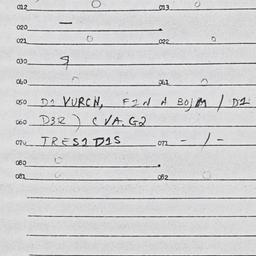 012 013
020
021 022
030 9
040 041
050 D1 VURCH, FIN A BOJM / D1
060 D3R) CVA.G2
070 TRES1 D1S 071 - / -
080
081 082